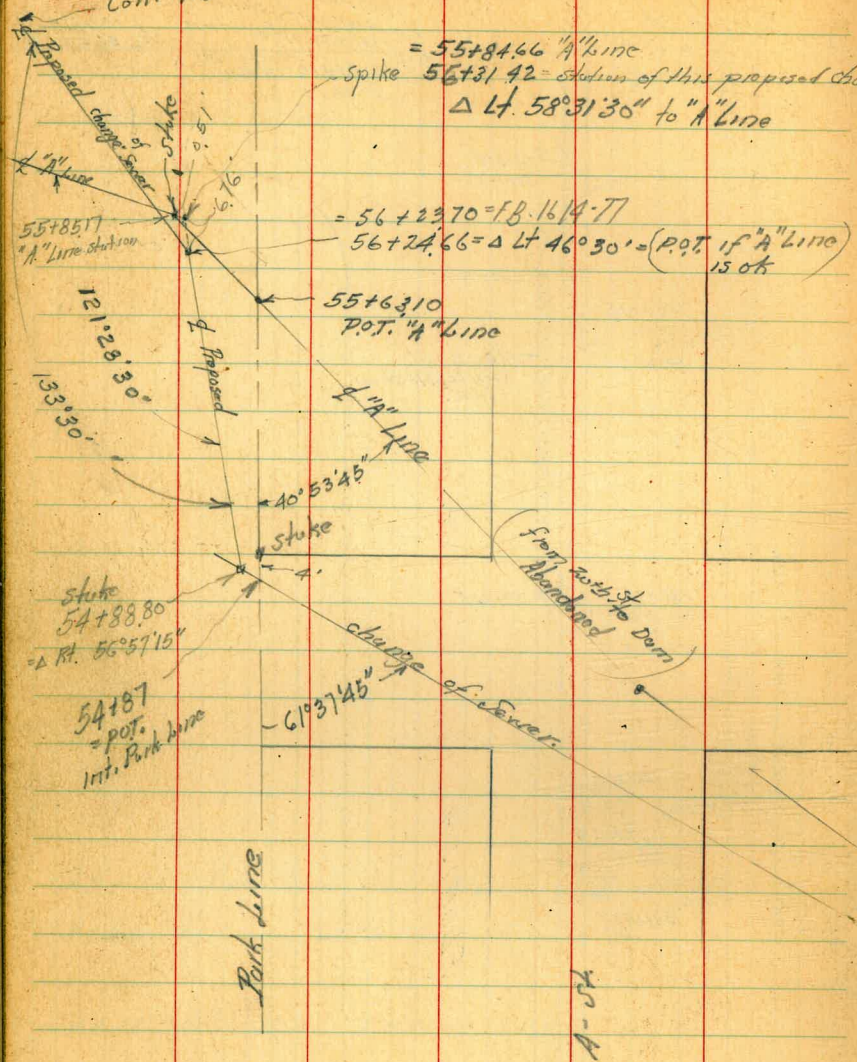 = 55+84.66 "A" Line
spike 56+31.42 = station of this proposed
Δ Lt. 58°31'30" to "A" Line
℄ Proposed change of Sewer
stake
.51
℄ "A" Line
55+85.17
"A" Line station
= 56+23.70 = F.B. 1614-77
56+24.66 = Δ Lt 46°30' = (P.O.T. if "A" Line
is ok)
55+63.10
P.O.T. "A" Line
121°28'30"
133°30'
℄ Proposed
℄ "A" Line
40°53'45"
stake
4.
(from to Dam
Abandoned)
stake
54+88.80
= Δ Rt. 56°57'15"
change of Sewer.
54+87
= P.O.T.
Int. Park Line
61°37'45"
Park Line
A-St